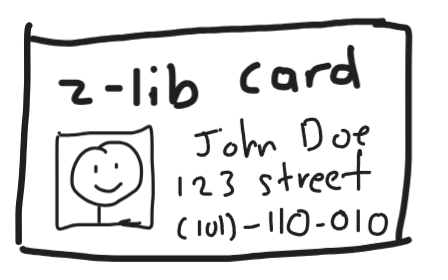 z-lib card
John Doe
123 street
(101)-110-010